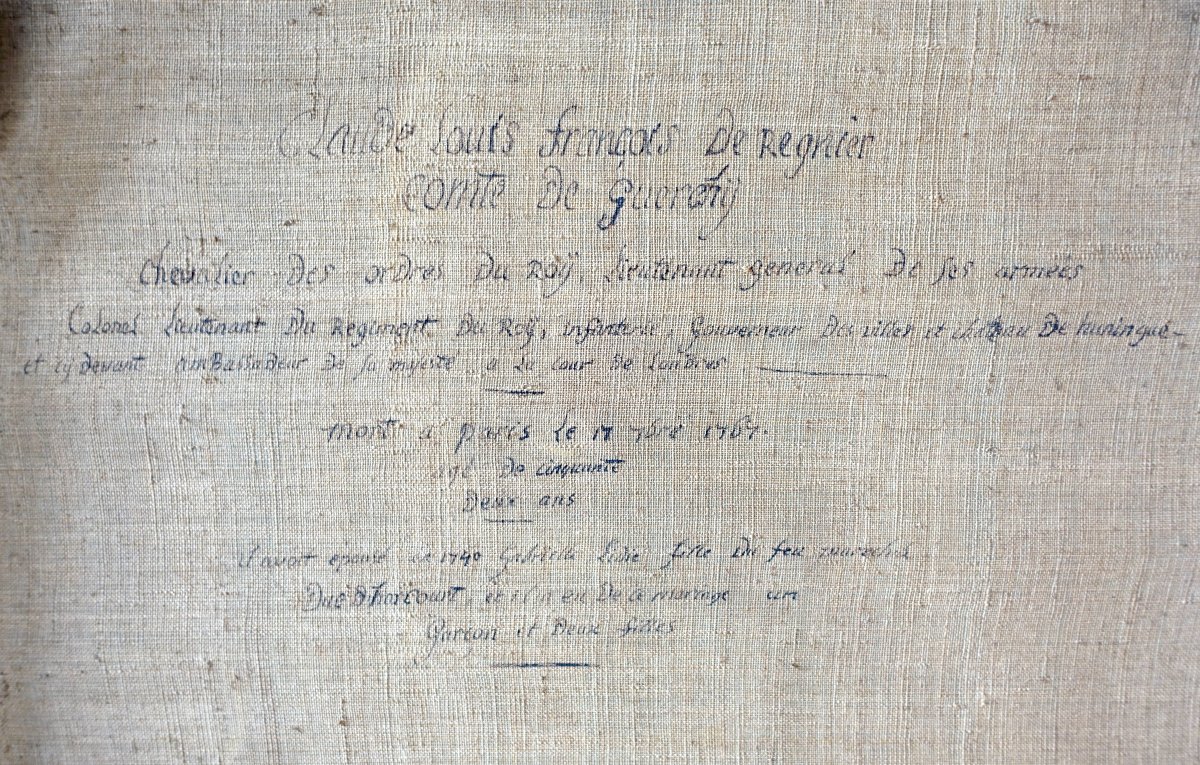 Claude Louis françois De Regnier
Comte De Guerchÿ
Chevalier Des ordres Du Roÿ, Lieutenant general De ses armées
Colonel Lieutenant Du Regiment Du Roÿ, infanterie, Gouverneur Des villes et chateau De huningue
et cÿ devant ambassadeur De sa majesté a La cour De Londres
mort a paris le 17 7bre 1767.
agé De cinquante
Deux ans
Il avoit épousé en 1740 gabriele Lidie fille Du feu marechal
Duc D'harcourt, et il a eu De ce mariage un
Garçon et Deux filles